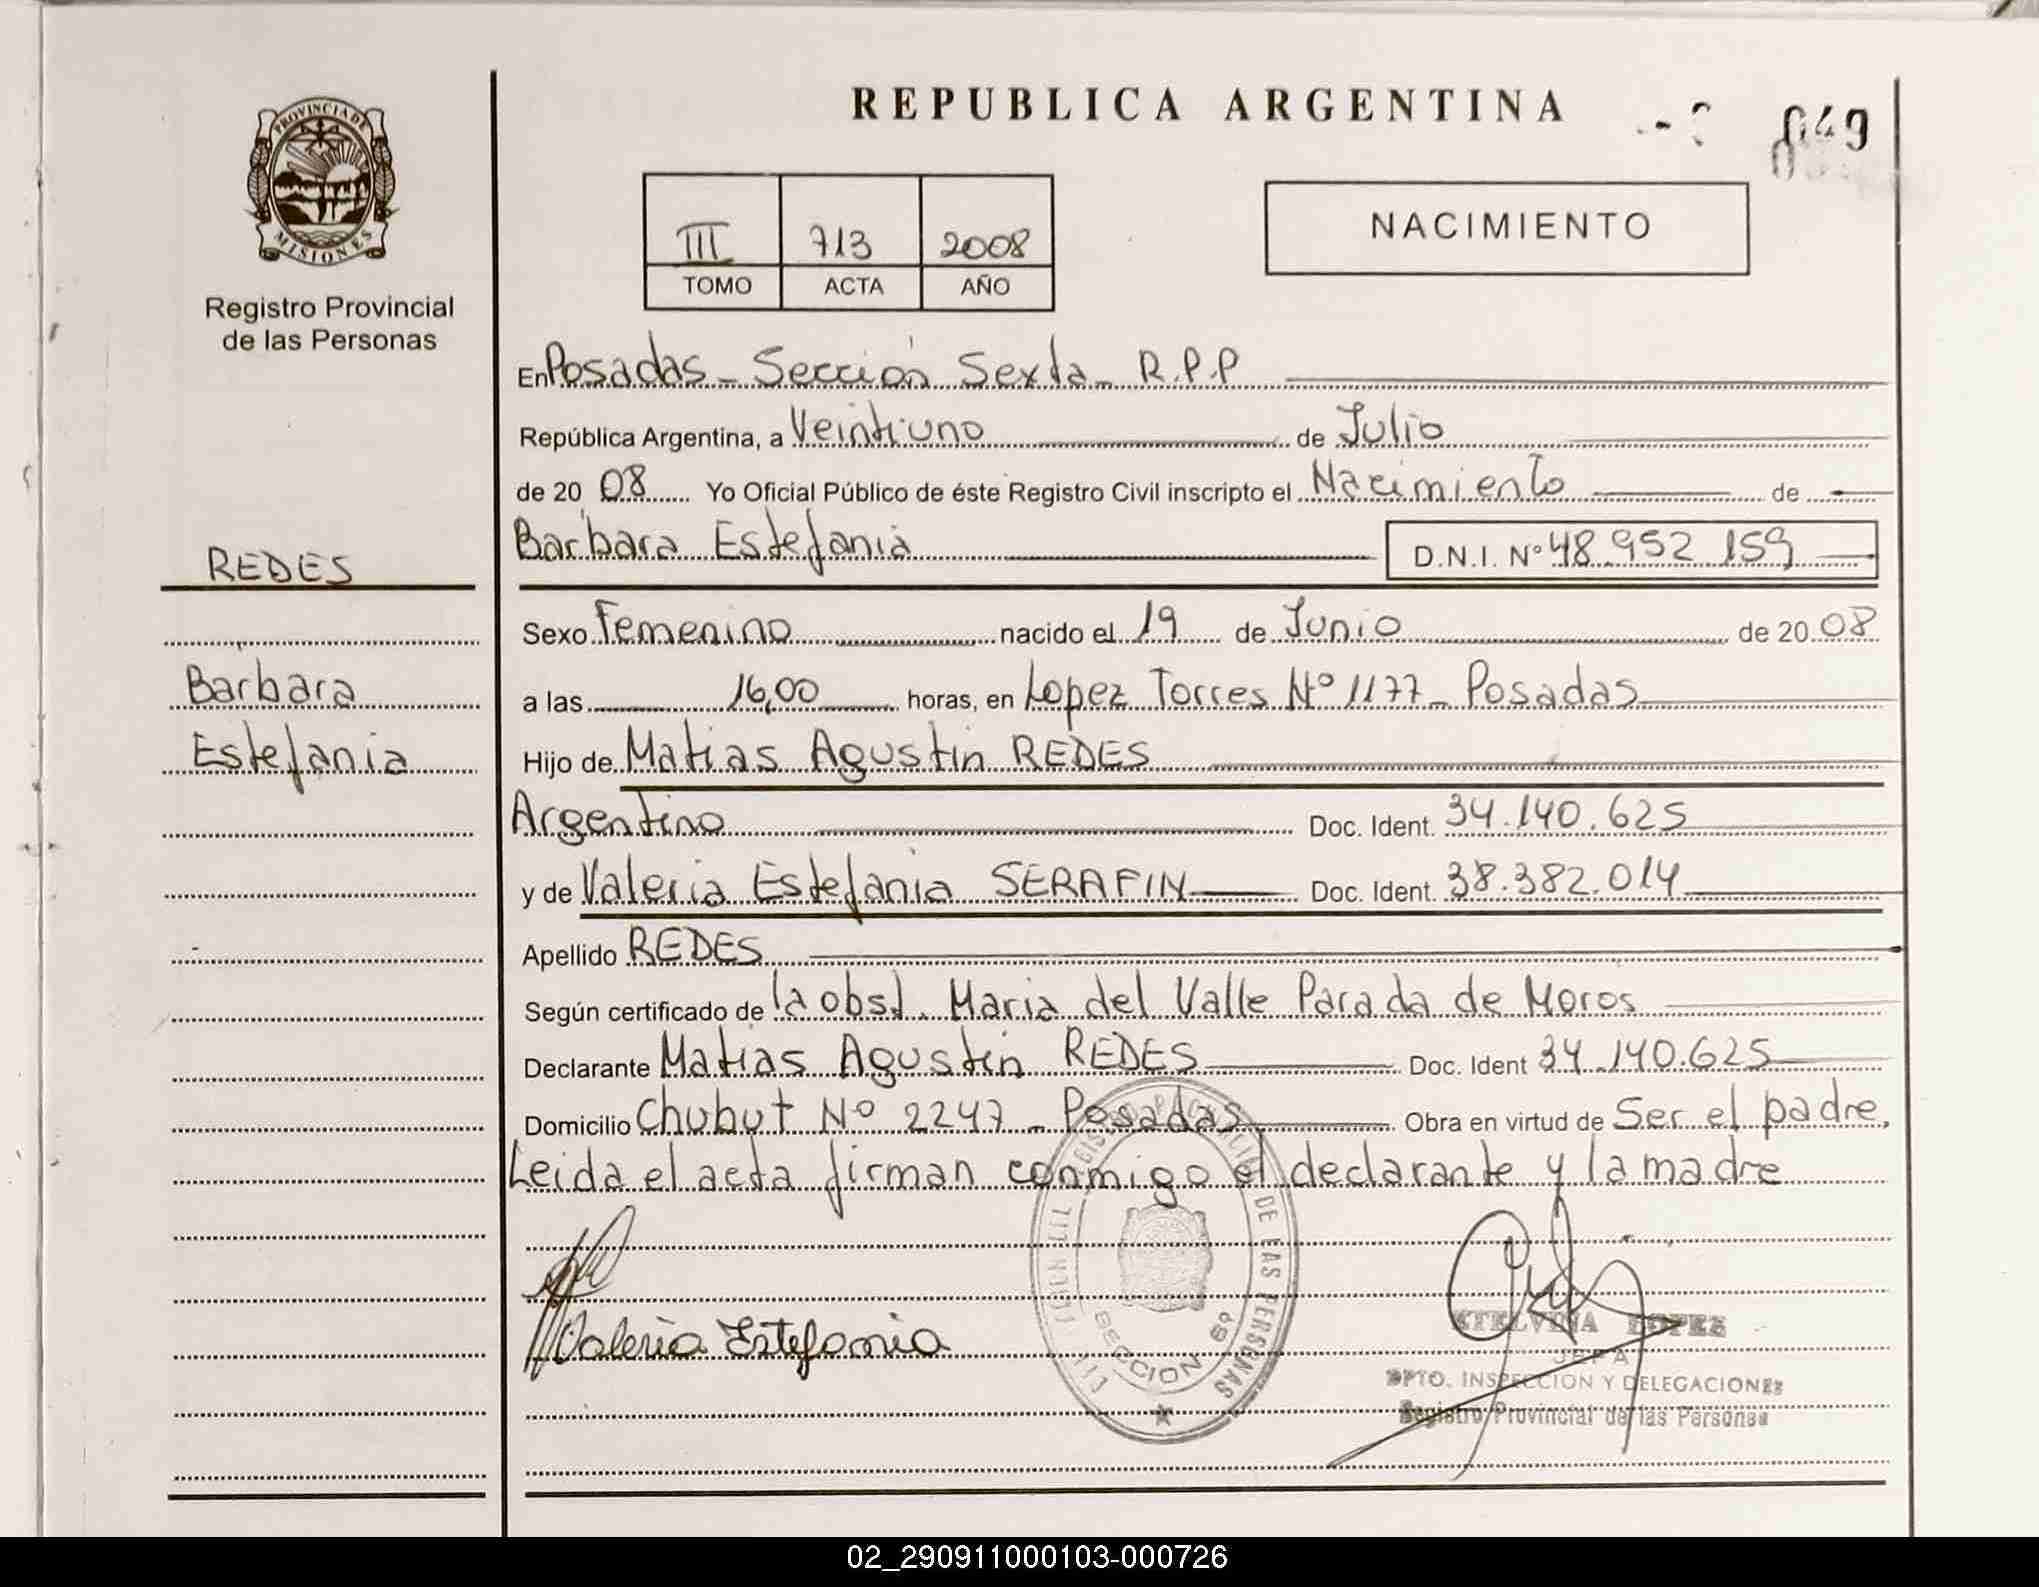 REPUBLICA ARGENTINA
049
PROVINCIA DE MISIONES
Registro Provincial
de las Personas
III 713 2008
TOMO ACTA AÑO
NACIMIENTO
En Posadas - Sección Sexta - R.P.P
República Argentina, a Veintiuno de Julio
de 20 08 Yo Oficial Público de éste Registro Civil inscripto el Nacimiento de
Barbara Estefania D.N.I. Nº 48.952 159
REDES
Barbara
Estefania
Sexo Femenino nacido el 19 de Junio de 20 08
a las 16,00 horas, en Lopez Torres Nº 1177 - Posadas
Hijo de Matias Agustin REDES
Argentino Doc. Ident. 34.140.625
y de Valeria Estefania SERAFIN Doc. Ident. 38.382.014
Apellido REDES
Según certificado de la obst. Maria del Valle Parada de Moros
Declarante Matias Agustin REDES Doc. Ident 34.140.625
Domicilio Chubut Nº 2247 - Posadas Obra en virtud de Ser el padre,
Leida el acta firman conmigo el declarante y la madre
Valeria Estefania
DE LAS PERSONAS
SECCION 6º
STELVINA LOPEZ
JEFA
DPTO. INSPECCION Y DELEGACIONES
Registro Provincial de las Personas
02_290911000103-000726